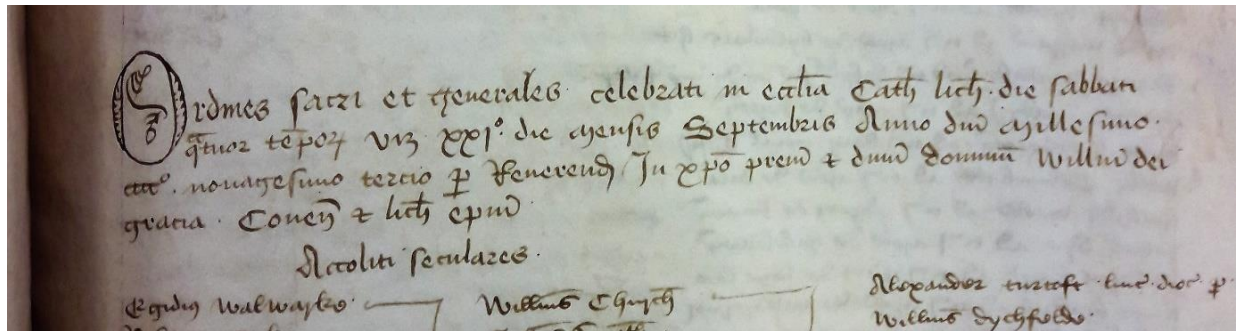 Ordines sacri et generales celebrati in eccl̄ia Cath̄ lich̄ die sabbati
quatuor tēporꝫ viz xxj°. die mensis Septembris Anno dn̄i millesimo
cccc°. nonagesimo tercio ꝑ Reverend̄ In xp̄o prem̄ & dnm̄ domnum̄ Willm̄ dei
gracia Coven̄ & lich̄ ep̄m̄
Accoliti seculares
Egidiꝰ Walwarke
Willm̄s Chyrch̄
Alexander turtoft linc̄ dioc̄ ꝑ
Willm̄s dychfelde